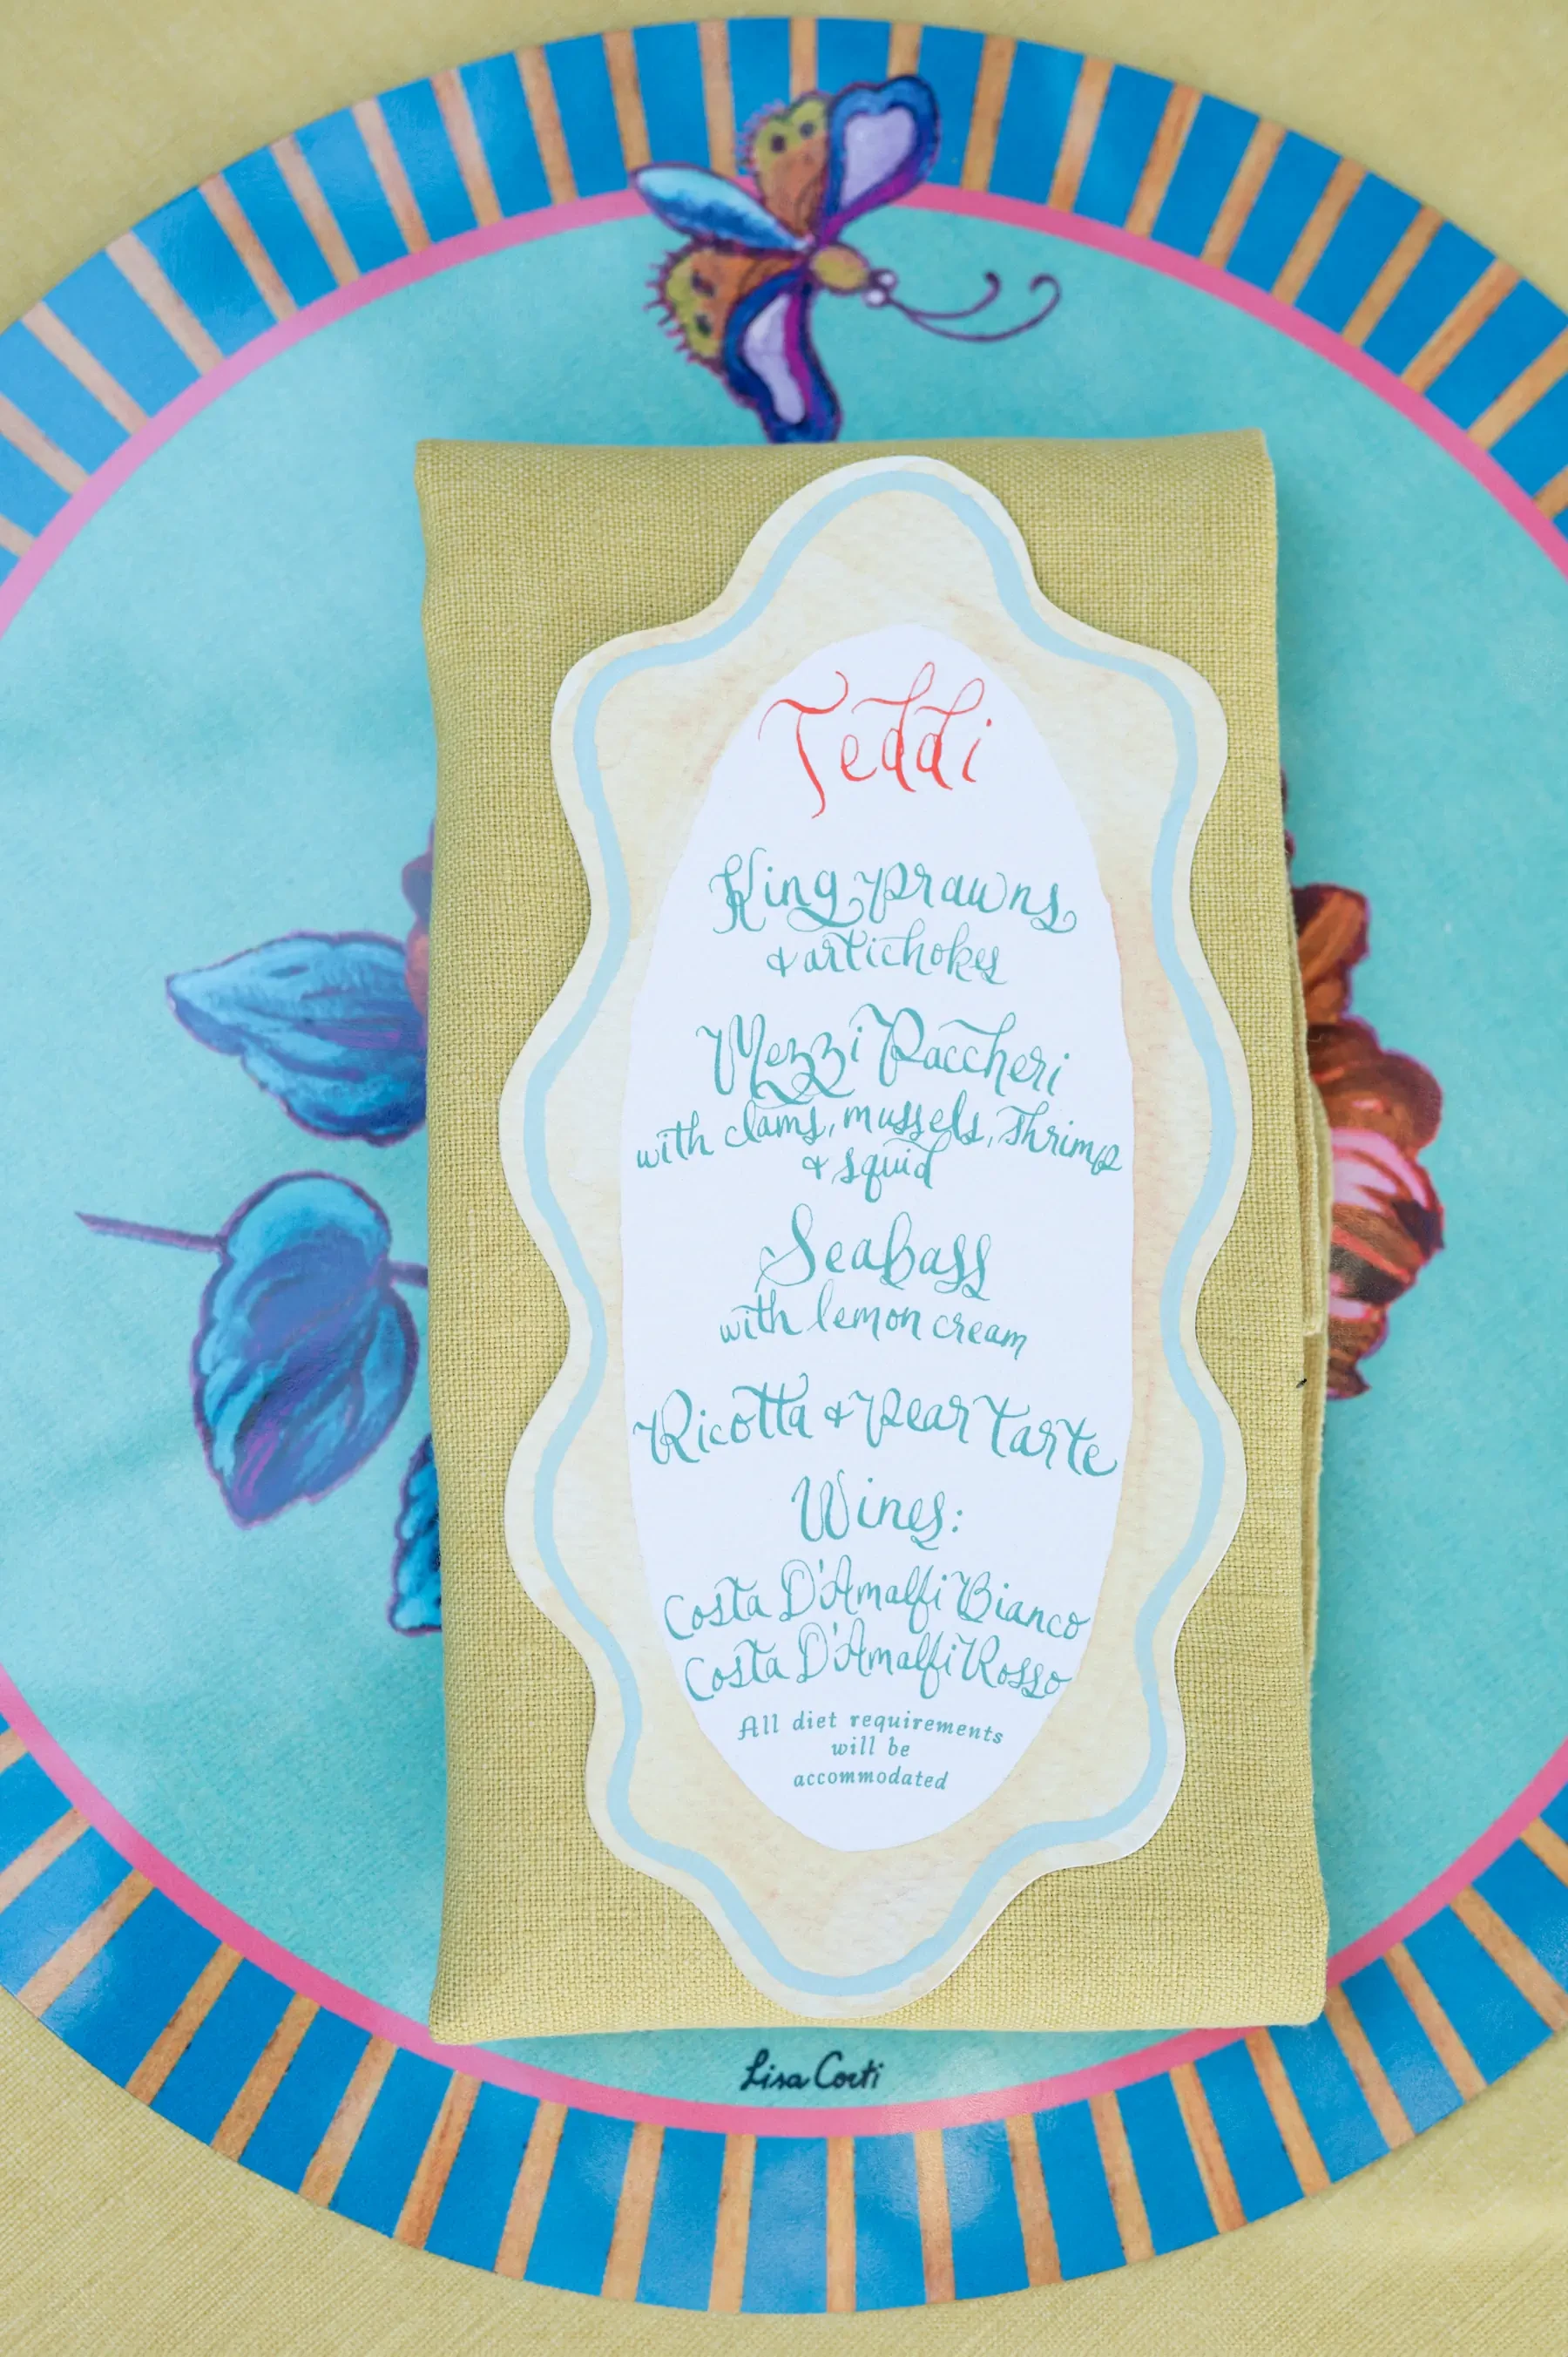 Teddi
King prawns
& artichokes
Mezzi Paccheri
with clams, mussels, shrimp
& squid
Seabass
with lemon cream
Ricotta & pear tarte
Wines:
Costa D'Amalfi Bianco
Costa D'Amalfi Rosso
All diet requirements
will be
accommodated
Lisa Corti